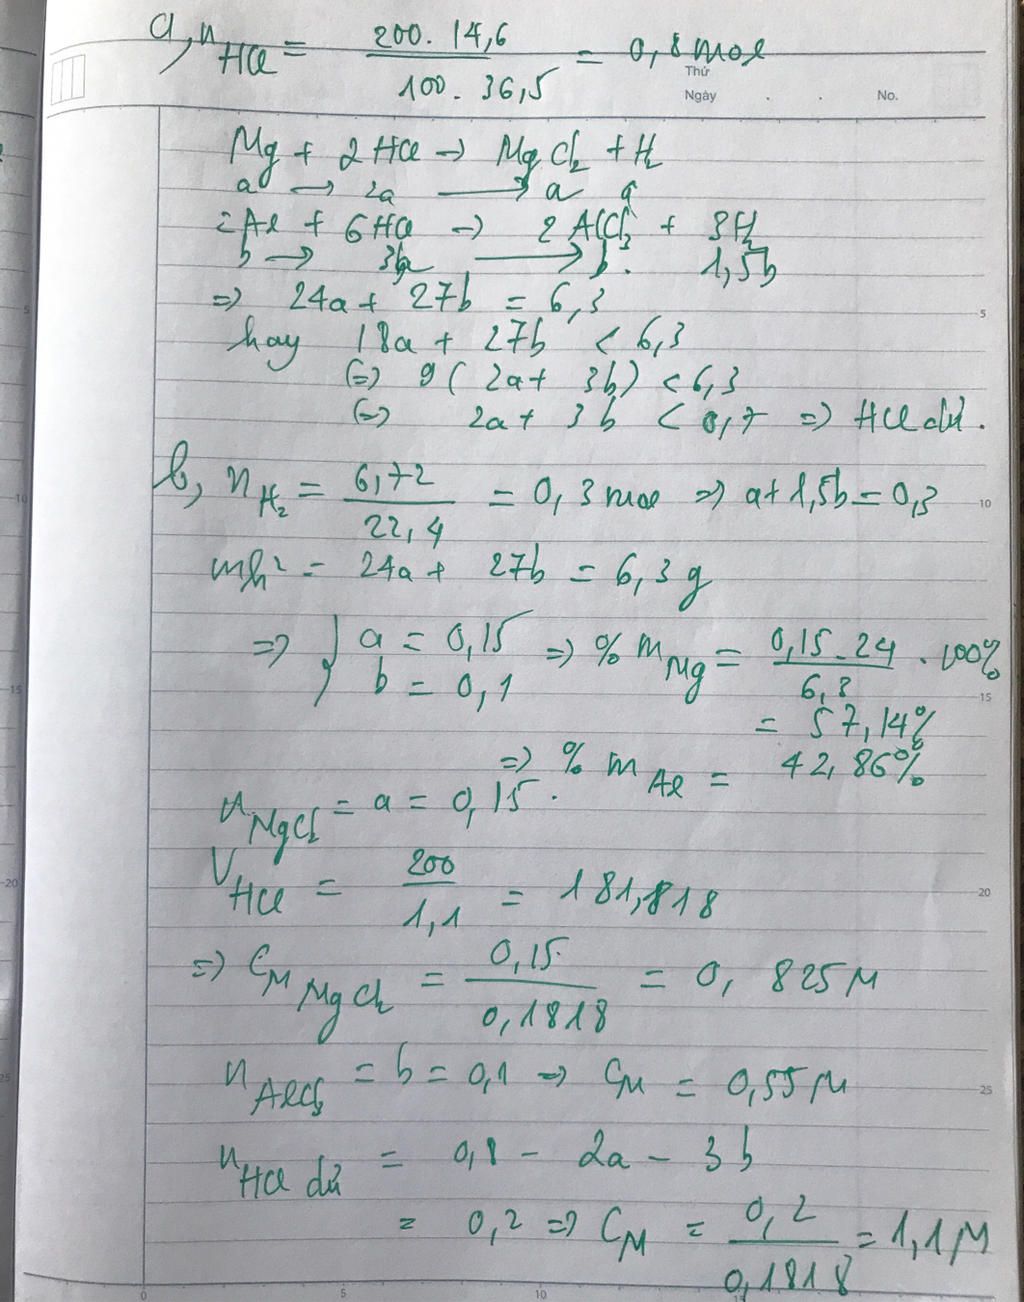 a, nHCl = 200. 14,6 / 100. 36,5 = 0,8 mol
Thứ
Ngày . . No.
Mg + 2HCl → MgCl2 + H2
a → 2a → a a
2Al + 6HCl → 2AlCl3 + 3H2
b → 3b → b. 1,5b
=> 24a + 27b = 6,3
hay 18a + 27b < 6,3
(=) 9(2a + 3b) < 6,3
(=) 2a + 3b < 0,7 => HCl dư.
b, nH2 = 6,72 / 22,4 = 0,3 mol => a + 1,5b = 0,3
mh2 = 24a + 27b = 6,3g
=> } a = 0,15 => % mMg = 0,15.24 / 6,3 . 100%
b = 0,1
= 57,14%
=> % mAl = 42,86%
nMgCl2 = a = 0,15.
VHCl = 200 / 1,1 = 181,818
=> CM MgCl2 = 0,15 / 0,1818 = 0,825M
nAlCl3 = b = 0,1 => CM = 0,55M
nHCl dư = 0,8 - 2a - 3b
= 0,2 => CM = 0,2 / 0,1818 = 1,1M
5
10
15
20
25
0 5 10